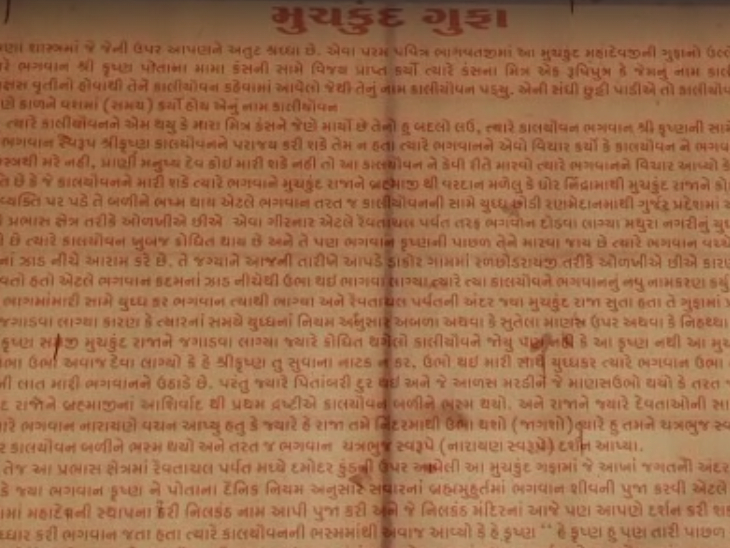 મુચકુંદ ગુફા
શાસ્ત્રમાં જે જેની ઉપર આપણને અતુટ શ્રધ્ધા છે. એવા પરમ પવિત્ર ભાગવતજીમાં આ મુચકુંદ મહાદેવજીની ગુફાનો
ભગવાન શ્રી કૃષ્ણ પોતાના મામા કંસની સામે વિજય પ્રાપ્ત કર્યો ત્યારે કંસના મિત્ર એક રૂષિપુત્ર કે જેમનું નામ
વૃતીનો હોવાથી તેને કાલીયોવન કહેવામાં આવેલો જેથી તેનું નામ કાલીયોવન પડયુ. એની સંધી છુટ્ટી પાડીએ તો
કાળને વશમાં (સમય) કર્યો હોય એનું નામ કાલીયોવન
ત્યારે કાલીયોવનને એમ થયુ કે મારા મિત્ર કંસને જેણે માર્યો છે તેનો હુ બદલો લઉ, ત્યારે કાલયોવન ભગવાન શ્રી કૃષ્ણની
ભગવાન સ્વરૂપ શ્રીકૃષ્ણ કાલયોવનને પરાજય કરી શકે તેમ ન હતા ત્યારે ભગવાનને એવો વિચાર કર્યો કે કાલયોવન ને
મરે નહી, પ્રાણી મનુષ્ય દેવ કોઈ મારી શકે નહી તો આ કાલયોવન ને કેવી રીતે મારવો ત્યારે ભગવાનને વિચાર આવ્યો
છે કે જે કાલયોવનને મારી શકે ત્યારે ભગવાને મુચકુંદ રાજાને બ્રહ્માજી થી વરદાન મળેલુ કે ઘોર નિંદ્રામાથી મુચકુંદ રાજાને
વ્યક્તિ પર પડે તે બળીને ભષ્મ થાય એટલે ભગવાન તરત જ કાલીયોવનની સામે યુધ્ધ છોડી રણમેદાનમાથી ગુર્જર પ્રદેશમાં
પ્રભાસ ક્ષેત્ર તરીકે ઓળખીએ છીએ એવા ગીરનાર એટલે રૈવતાચલ પર્વત તરફ ભગવાન દોડવા લાગ્યા મથુરા નગરીનું
છે ત્યારે કાલયોવન ખુબજ ક્રોધિત થાય છે અને તે પણ ભગવાન કૃષ્ણની પાછળ તેને મારવા જાય છે ત્યારે ભગવાન
ઝાડ નીચે આરામ કરે છે. તે જગ્યાને આજની તારીખે આપડે ડાકોર ગામમાં રણછોડરાયજી તરીકે ઓળખીએ છીએ
હતો એટલે ભગવાન કદમનાં ઝાડ નીચેથી ઉભા થઇ ભાગવા લાગ્યા ત્યારે ત્યા કાલયોવને ભગવાનનું નવુ નામકરણ
ભાગમાંમારી સામે યુધ્ધ કર ભગવાન ત્યાથી ભાગ્યા અને રૈવતાચલ પર્વતની અંદર જ્યા મુચકુંદ રાજા સુતા હતા તે ગુફામાં
જગાડવા લાગ્યા કારણ કે ત્યારનાં સમયે યુધ્ધનાં નિયમ અનુસાર અબળા અથવા કે સુતેલા માણસ ઉપર અથવા કે
કૃષ્ણ સમજી મુચકુંદ રાજાને જગાડવા લાગ્યા જ્યારે ક્રોધિત થયેલો કાલીયોવને જોયુ પણ નહી કે આ કૃષ્ણ નથી આ
ઉભા અવાજ દેવા લાગ્યો કે હે શ્રીકૃષ્ણ તુ સુવાના નાટક ન કર, ઉભો થઇ મારી સાથે યુધ્ધકર ત્યારે ભગવાન ઉભા
લાત મારી ભગવાનને ઉઠાડે છે. પરંતુ જ્યારે પિતાંબરી દુર થઇ અને જે આળસ મરડીને જે માણસઉભો થયો કે તરત
રાજાને બ્રહ્માજીનાં આશિર્વાદ થી પ્રથમ દ્રષ્ટીએ કાલયોવન બળીને ભસ્મ થયો. અને રાજાને જ્યારે દેવતાઓની
ભગવાન નારાયણે વચન આપ્યુ હતુ કે જ્યારે હે રાજા તમે નિંદરમાથી ઉભા થશો (જાગશો) ત્યારે હુ તમને ચત્રભુજ
કાલયોવન બળીને ભસ્મ થયો અને તરત જ ભગવાન ચત્રભુજ સ્વરૂપે (નારાયણ સ્વરૂપે) દર્શન આપ્યા.
તેજ આ પ્રભાસ ક્ષેત્રમાં રૈવતાચલ પર્વત મધ્યે દામોદર કુંડની ઉપર આવેલી આ મુચકુંદ ગફામાં જે આખાં જગતની અંદર
કે જ્યા ભગવાન કૃષ્ણ ને પોતાના દૈનિક નિયમ અનુસાર સવારનાં બ્રહ્મમુહુર્તમાં ભગવાન શીવની પુજા કરવી એટલે
મહાદેવની સ્થાપના કરી નિલકંઠ નામ આપી પુજા કરી અને જે નિલકંઠ મંદિરનાં આજે પણ આપણે દર્શન કરી
કરી ભગવાન જતા હતા ત્યારે કાલયોવનની ભસ્મમાંથી અવાજ આવ્યો કે હે કૃષ્ણ " હે કૃષ્ણ હુ પણ તારી પાછળ